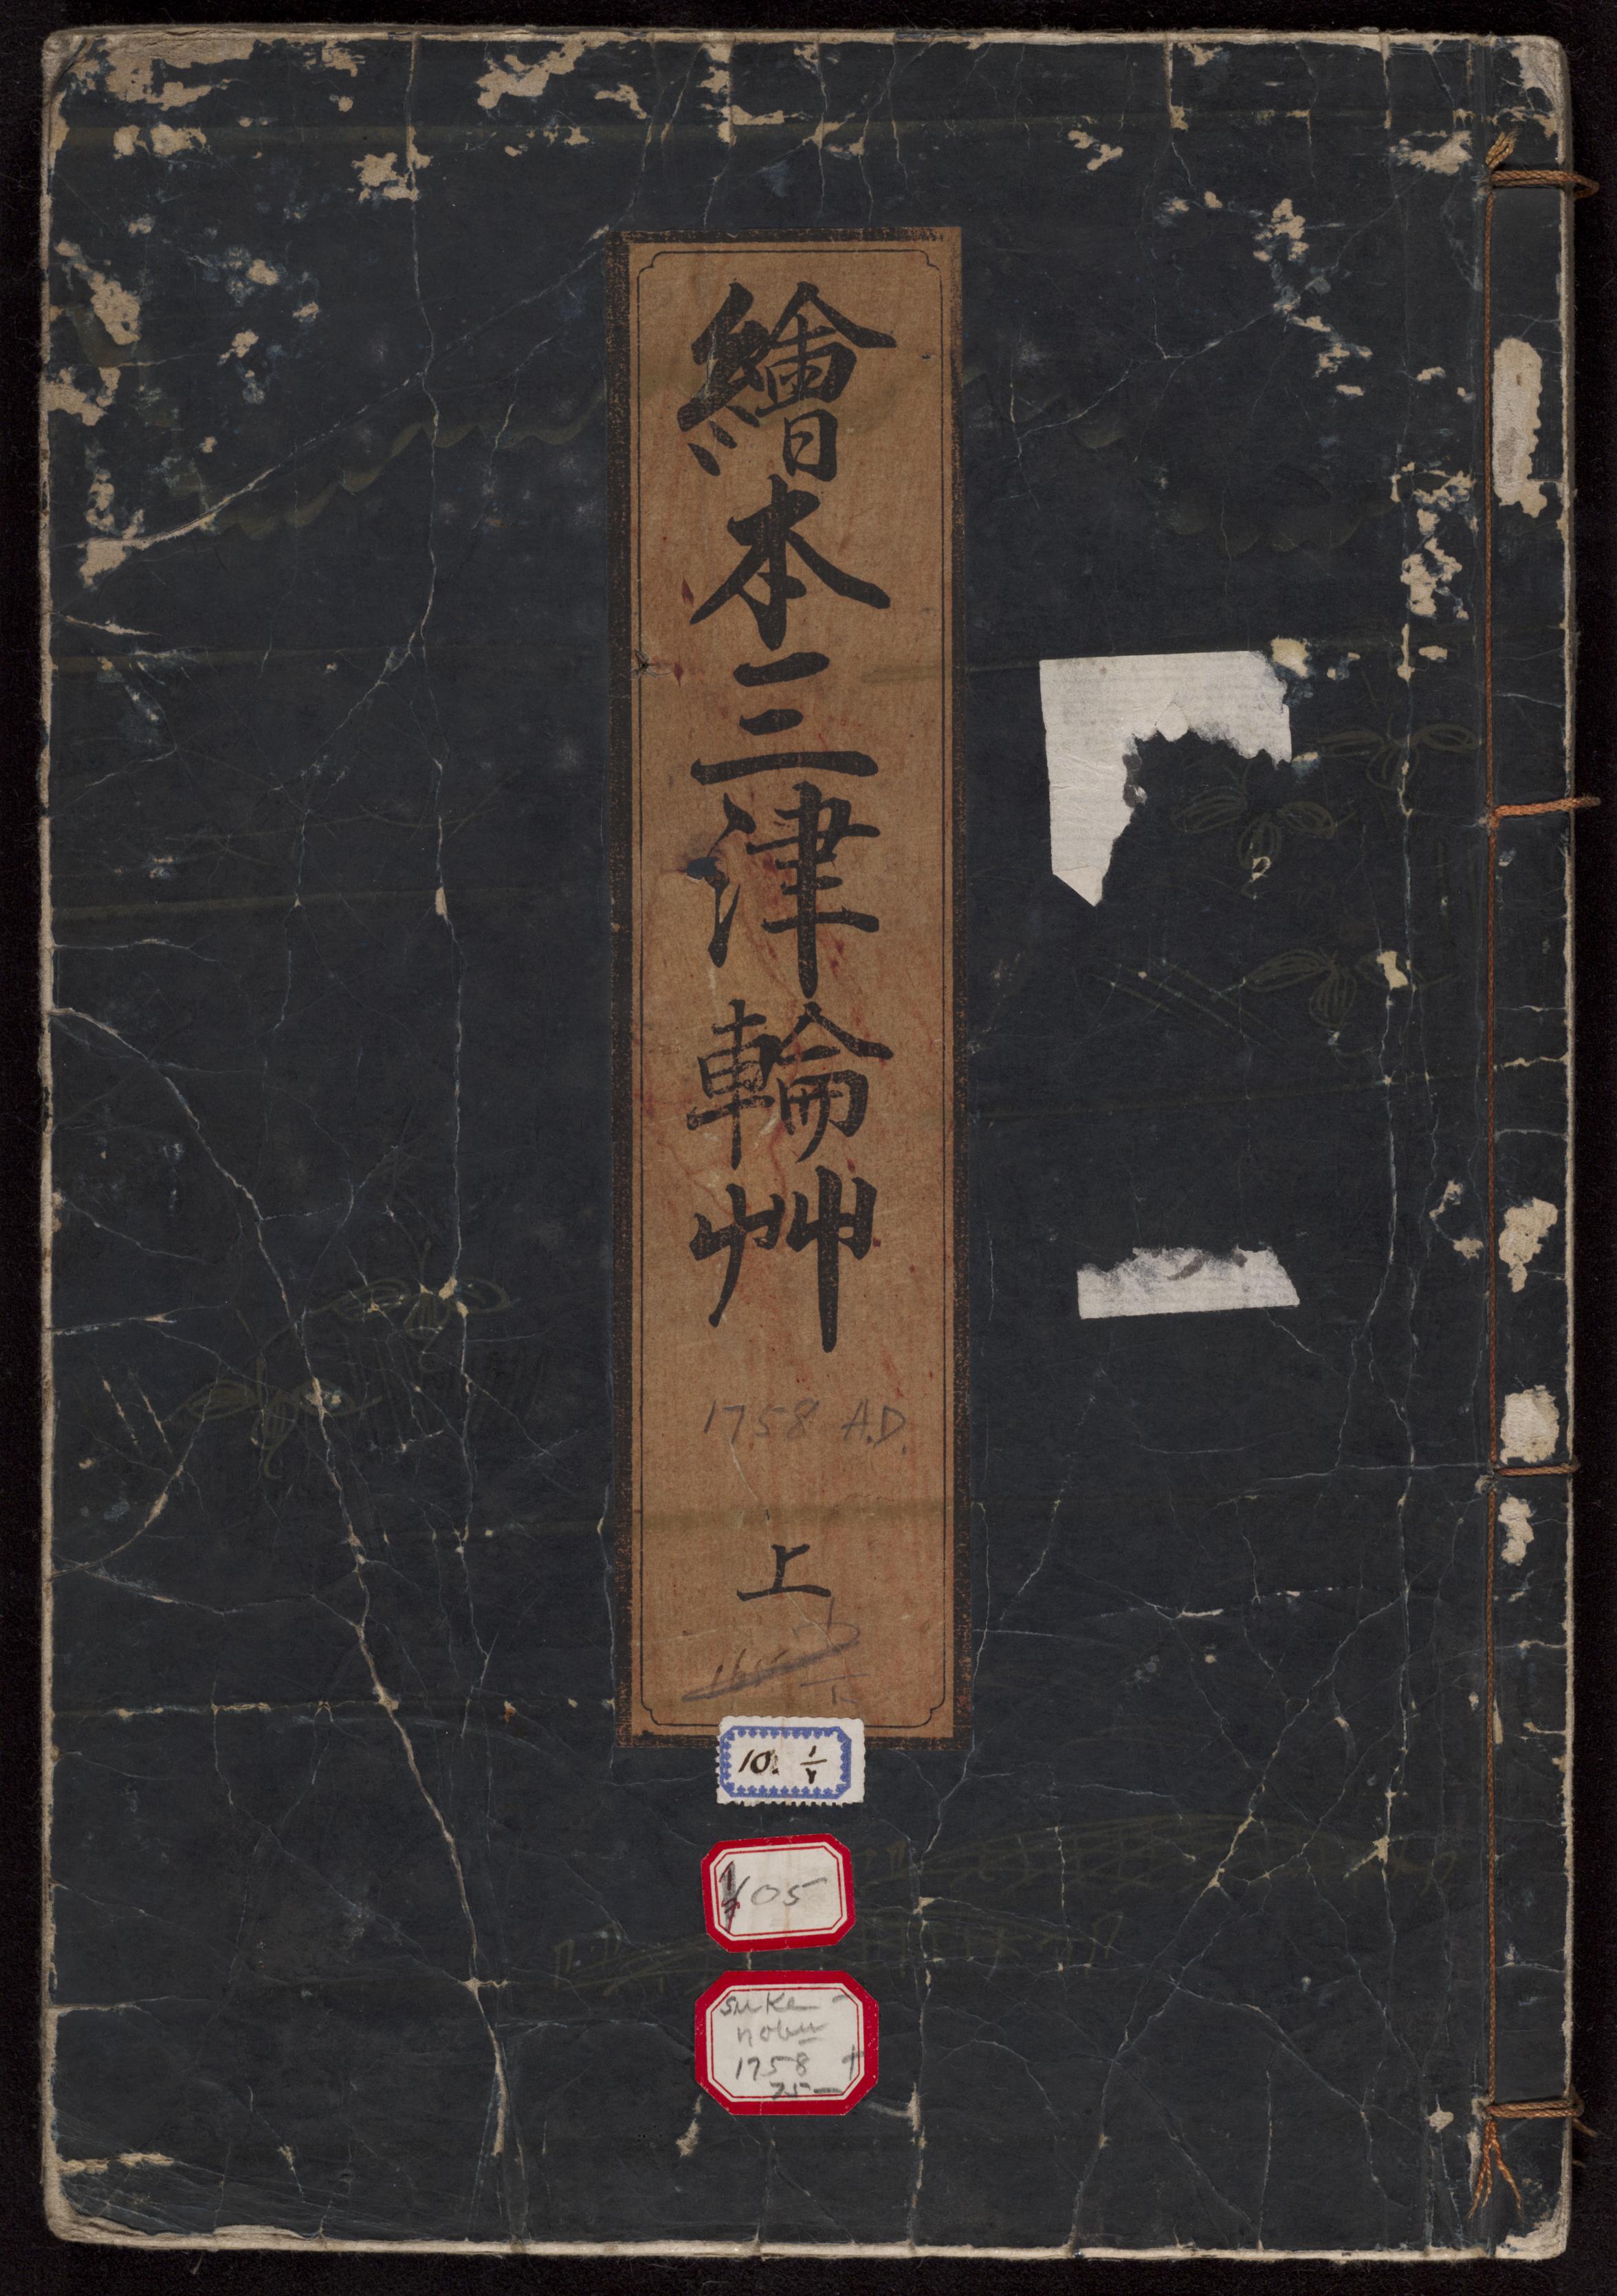 繪本三津輪艸
1758 A.D.
上
10. 1/2
105
Suke-
nobu
1758